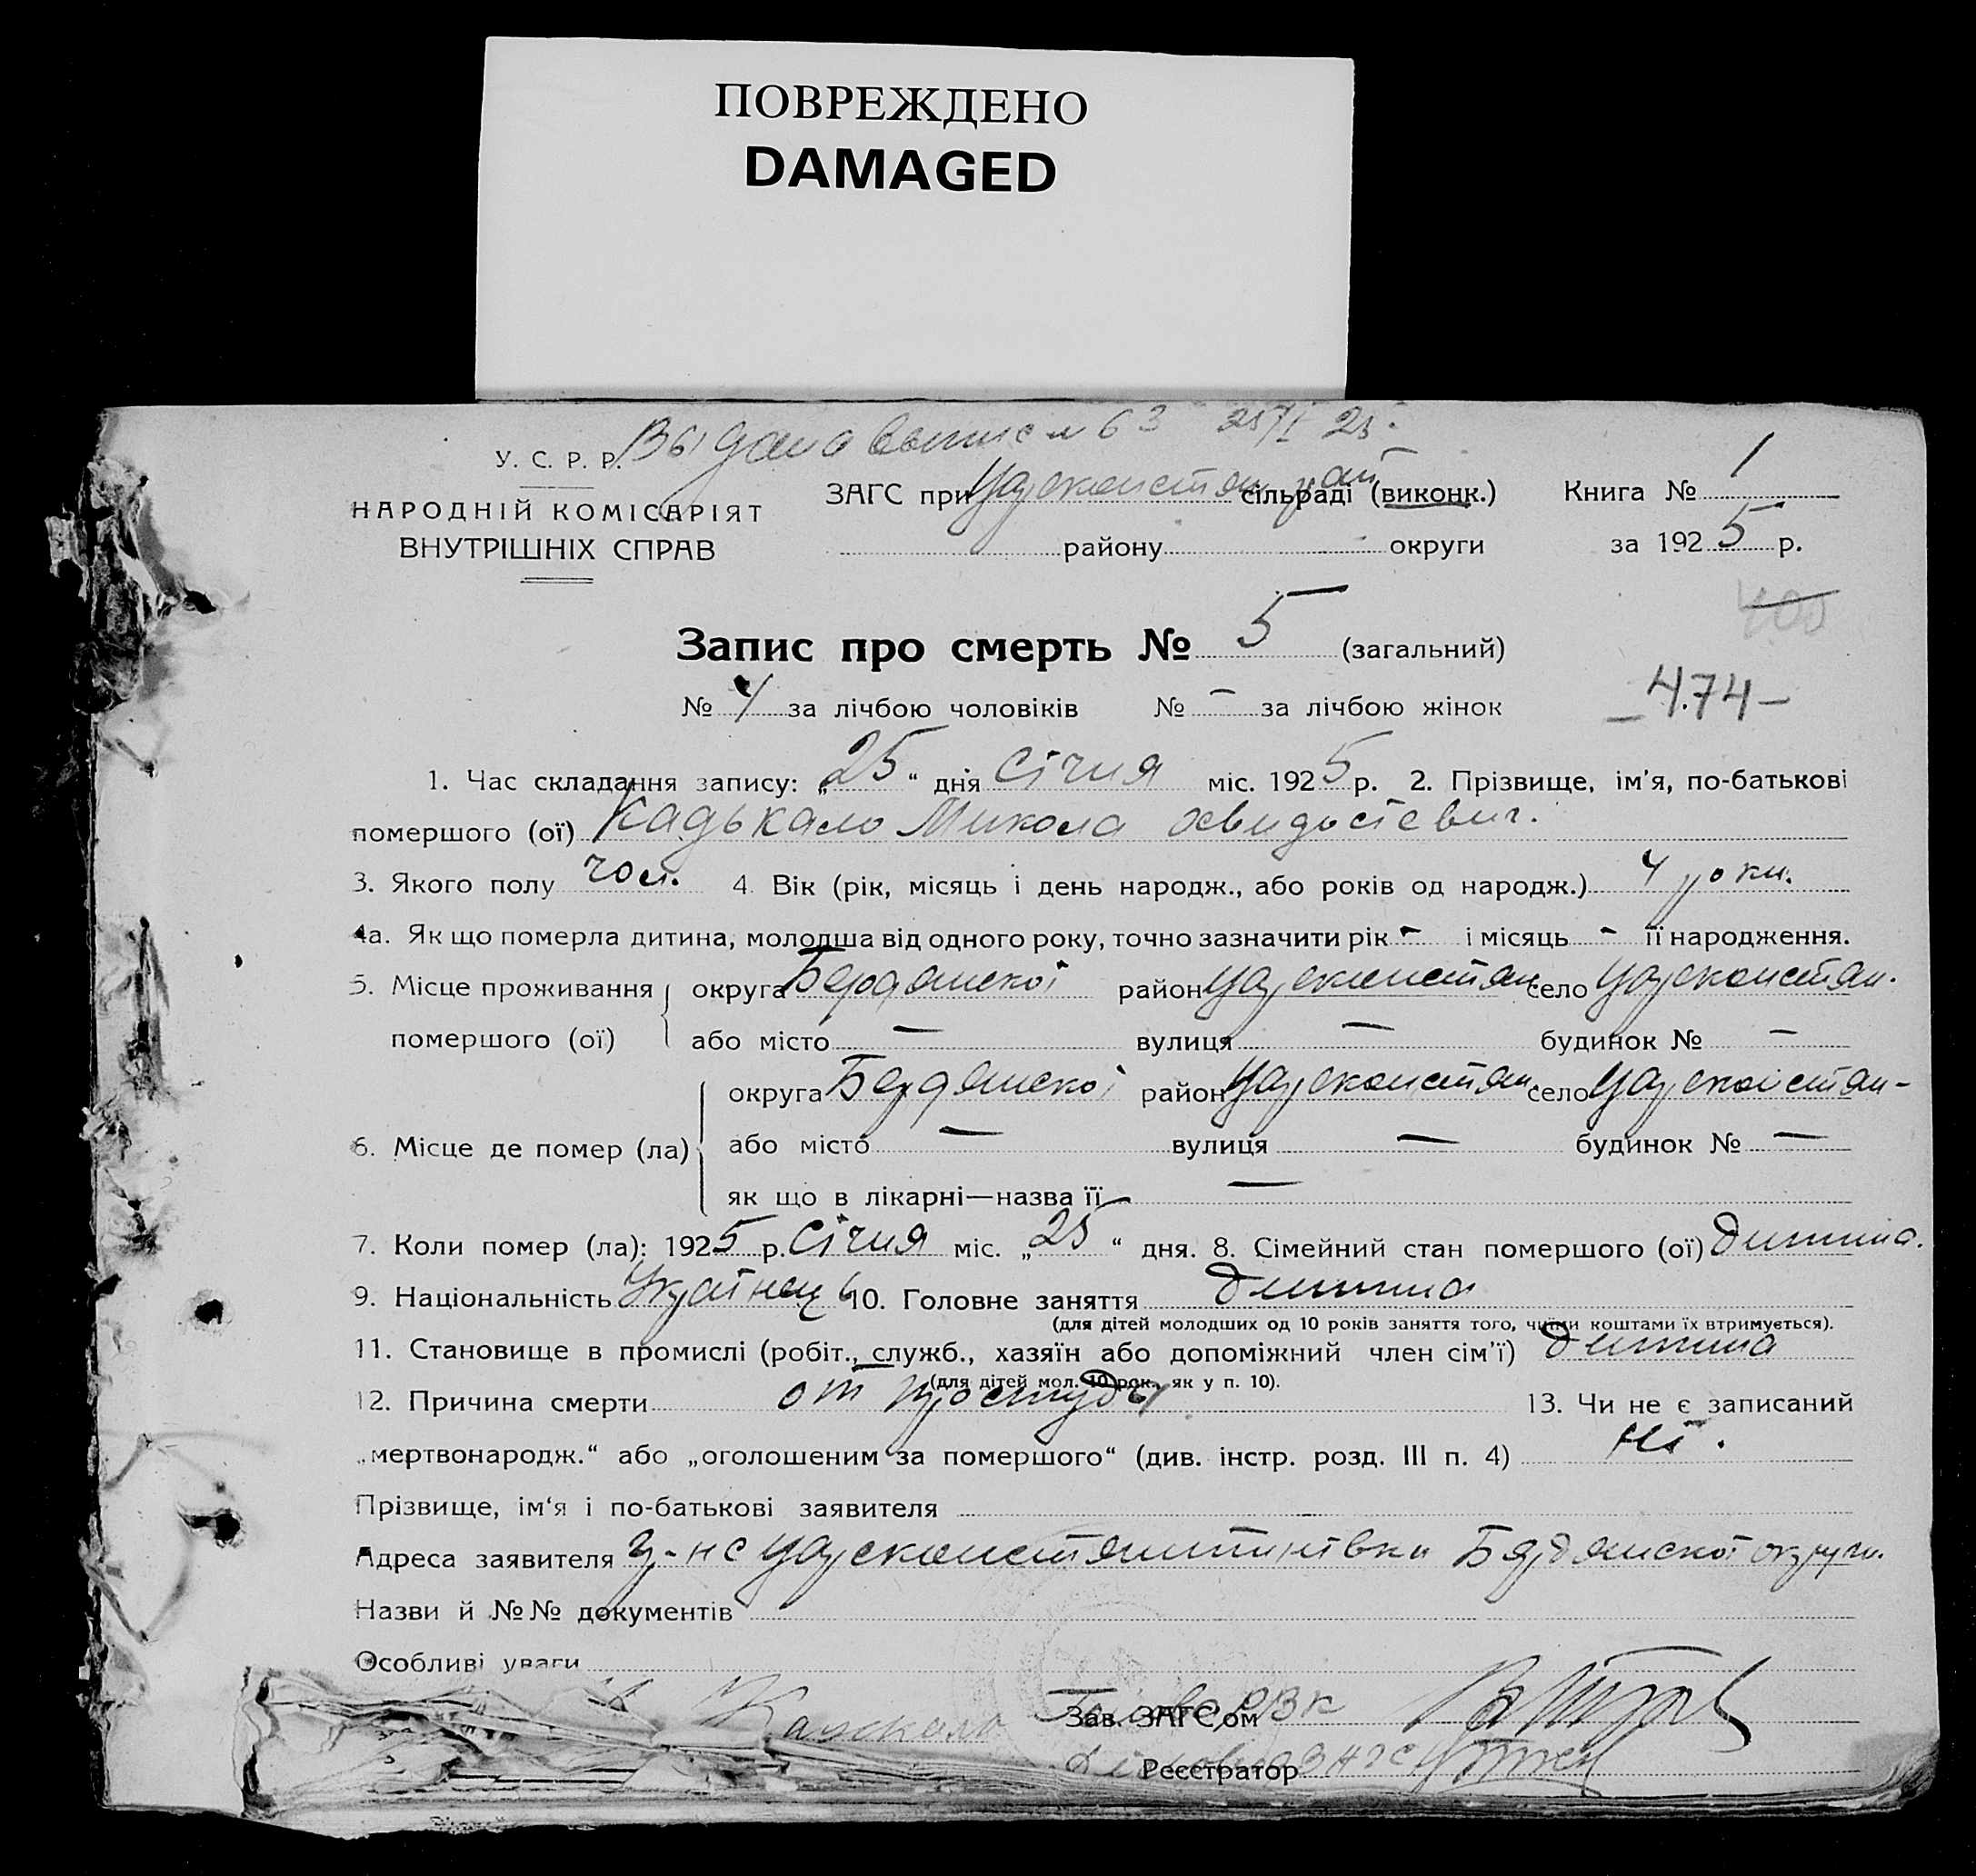 ПОВРЕЖДЕНО
DAMAGED
Выдана выпись 63
У. С. Р. Р.
НАРОДНІЙ КОМІСАРІЯТ
ВНУТРІШНІХ СПРАВ
ЗАГС при Царсконстан. рай сільраді (виконк.) Книга № 1
району округи за 1925 р.
400
Запис про смерть № 5 (загальний)
№ 4 за лічбою чоловіків № – за лічбою жінок
–474–
1. Час складання запису: „25“ дня Січня міс. 1925 р. 2. Прізвище, ім'я, по-батькові
помершого (ої) Кадькало Микола
3. Якого полу чол. 4. Вік (рік, місяць і день народж., або років од народж.) 4 роки.
4а. Як що померла дитина, молодша від одного року, точно зазначити рік – і місяць – її народження.
5. Місце проживання округа Бердянскої район Царсконстан. село Царсконстан.
помершого (ої) або місто – вулиця – будинок № –
округа Бердянскої район Царсконстан. село Царсконстан–
6. Місце де помер (ла) або місто – вулиця – будинок № –
як що в лікарні—назва її –
7. Коли помер (ла): 1925 р. Січня міс. „25“ дня. 8. Сімейний стан помершого (ої) Дитина.
9. Національність Українець 10. Головне заняття Дитина
(для дітей молодших од 10 років заняття того, чиїми коштами їх втримується).
11. Становище в промислі (робіт., служб., хазяїн або допоміжний член сім'ї) Дитина
(для дітей мол. 10 рок. як у п. 10).
12. Причина смерти от простуды 13. Чи не є записаний
„мертвонародж.“ або „оголошеним за помершого“ (див. інстр. розд. III п. 4) Ні.
Прізвище, ім'я і по-батькові заявителя
Адреса заявителя Царсконстантинівки Бердянскої округи.
Назви й №№ документів
Особливі уваги
Зав. ЗАГС'ом
Реєстратор